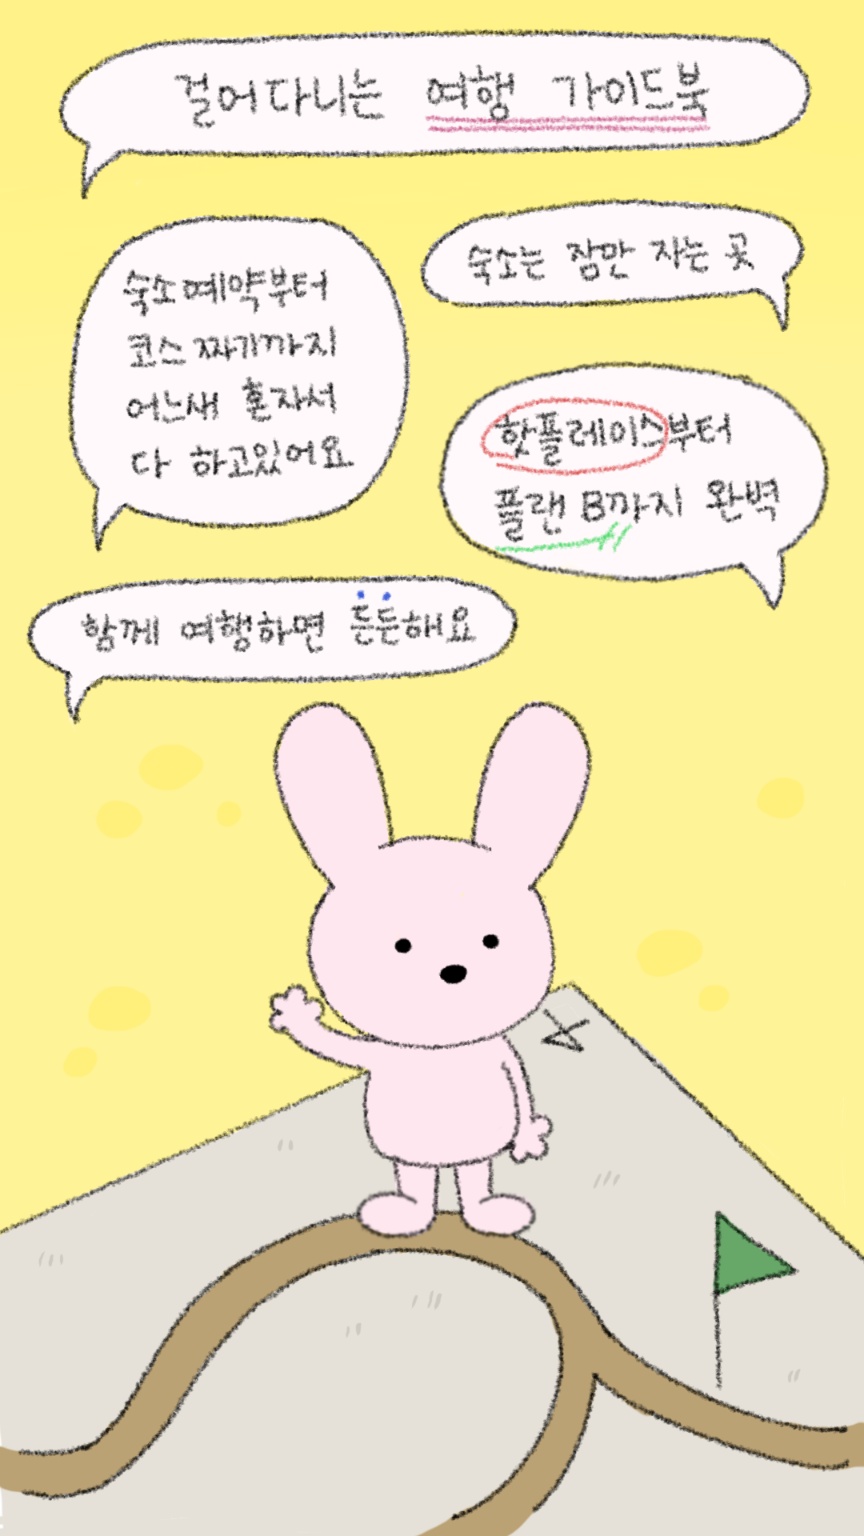 걸어다니는 여행 가이드북
숙소는 잠만 자는 곳
숙소예약부터
코스 짜기까지
어느새 혼자서
다 하고있어요
핫플레이스부터
플랜 B까지 완벽
함께 여행하면 든든해요